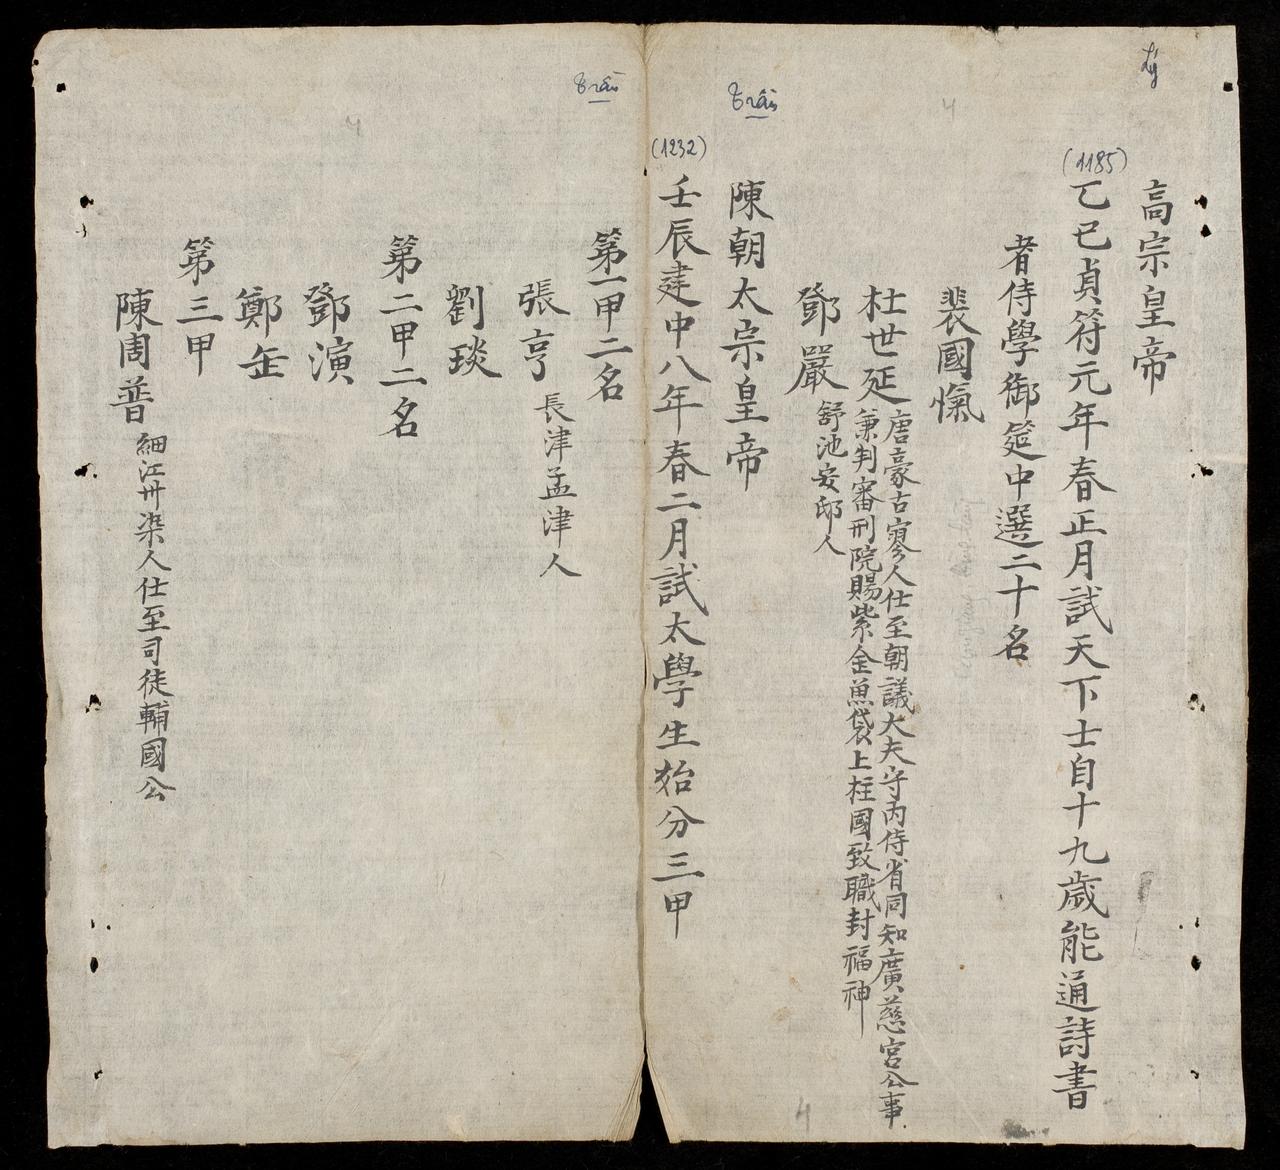 Lý
高宗皇帝
(1185)
乙巳貞符元年春正月試天下士自十九歲能通詩書
者侍學御筵中選二十名
裴國愾
杜世延
唐豪古寥人仕至朝議大夫守內侍省同知廣慈宮公事
兼判審刑院賜紫金魚袋上柱國致職封福神
鄧嚴 舒池安邸人
Trần
陳朝太宗皇帝
(1232)
壬辰建中八年春二月試太學生始分三甲
Trần
第一甲二名
張亨 長津孟津人
劉琰
第二甲二名
鄧演
鄭缶
第三甲
陳周普 細江卅染人仕至司徒輔國公